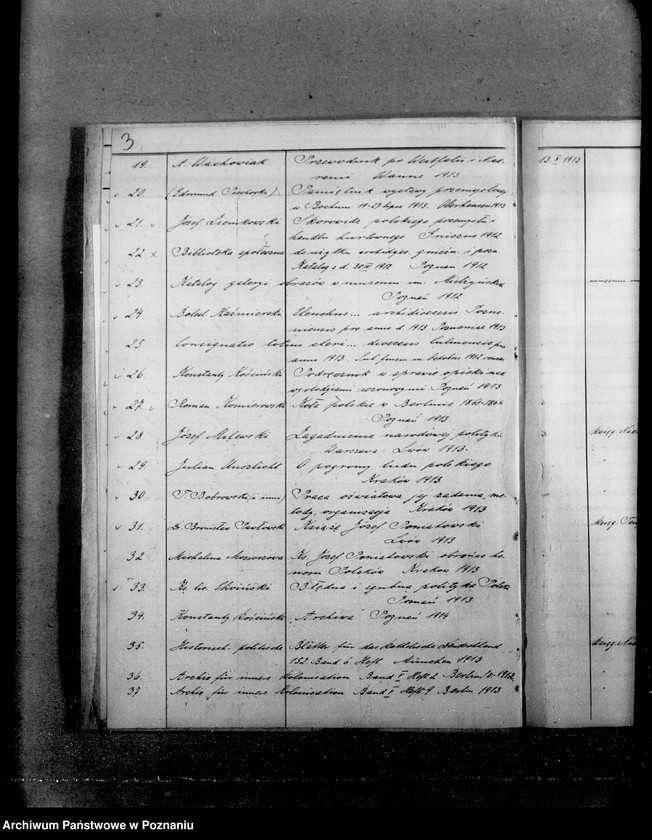 3
19. A. Wachowiak Przewodnik po Westfalii i Nad-
renii Wanne 1913
13 X 1913
20. (Edmund Piechocki) Pamiętnik wystawy przemysłowej
w Bochum 1913. Oberhausen 1913
21. Józef Skorowidz polskiego przemysłu i
handlu hurtownego Gniezno 1912
22 Biblioteka społeczna do użytku archidyec. gnieźn. i pozn.
Katalog z d. 30 1912 Poznań 1912
23 Katalog galeryi obrazów w muzeum im. Mielżyńskich
Poznań 1912
24 Bolesł. Kaźmierski Elenchus... archidioecesis Posna-
niensis pro anno d 1913 Posnaniae 1913
25 Consignatio totius cleri... dioecesis Culmensis pro
anno 1913.
26. Konstanty Kościński Podręcznik w sprawie opieki nad
Poznań 1913
27. Roman Komierowski Koła polskie w Berlinie
Poznań 1913
28 Józef Milewski Zagadnienie narodowej polityki
Warszawa - Lwów 1913.
29. Julian Unszlicht O pogromy ludu polskiego
Kraków 1913
30 T. Bobrowski Praca oświatowa jej zadania, me-
tody, organizacja Kraków 1913
31. Dr. Bronisław Pawłowski Książę Józef Poniatowski
Lwów 1913
32 Ks. Józef Poniatowski obrońca ho-
noru Polaków Kraków 1913
33. Błędna i zgubna polityka
Poznań 1913
34. Konstanty Kościński Archiwa Poznań 1914
35. Historisch-politische Blätter für das katholische Deutschland
152 Band 6 Heft München 1913
36. Archiv für innere Kolonisation Band V Heft 2 Berlin 1912
37. Archiv für innere Kolonisation Band V Heft 9 Berlin 1913
Archiwum Państwowe w Poznaniu